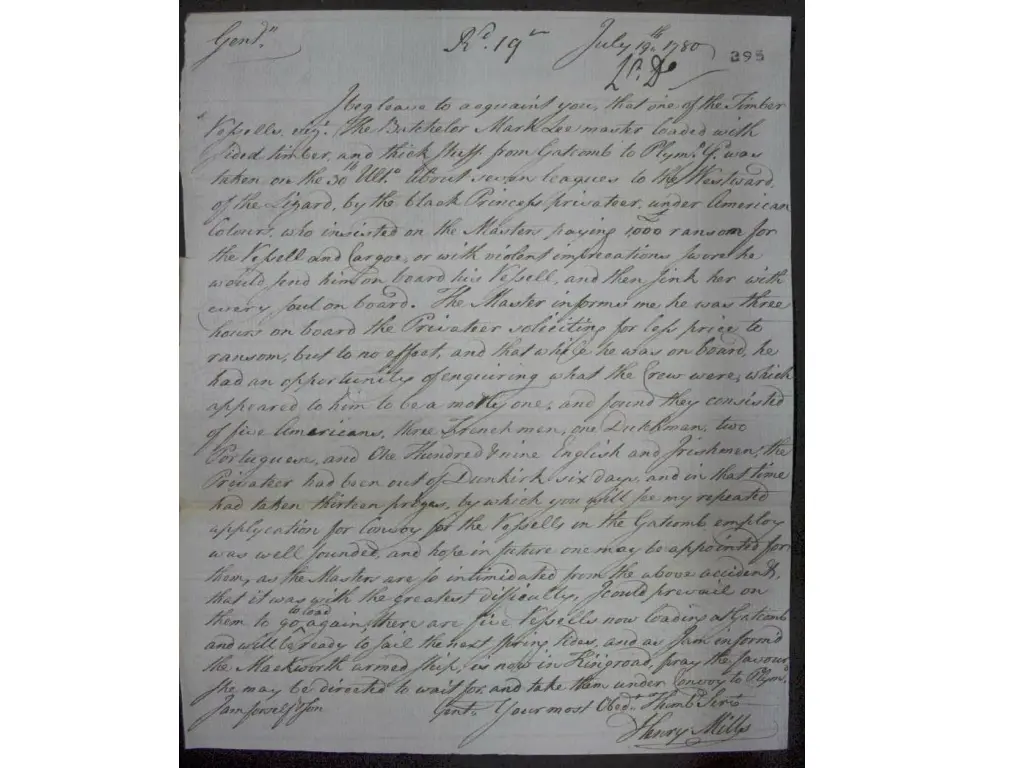 Gent.n
Rd. 19th July 19th 1780
395
I beg leave to acquaint you, that one of the Timber
Vessells, viz.t The Batchelor Mark Lee master loaded with
sided timber, and thick stuff from Gatcomb to Plym.o was
taken on the 30th Ult.o about seven leagues to the Westward
of the Lizard, by the black Princess privateer, under American
Colours, who insisted on the Masters paying 1000 ransom for
the Vessell and Cargoe, or with violent imprecations swore he
would send him on board his Vessell, and then sink her with
every soul on board. The Master informs me, he was three
hours on board the Privateer soliciting for less price to
ransom, but to no effect, and that while he was on board, he
had an opportunity of enquiring what the Crew were, which
appeared to him to be a motly one, and found they consisted
of five Americans, three French men, one Dutchman, two
Portuguese, and One Hundred & nine English and Irishmen; the
Privateer had been out of Dunkirk six days, and in that time
had taken thirteen prizes, by which you will see my repeated
applycation for Convoy for the Vessells in the Gatcomb employ
was well founded, and hope in future one may be appointed for
them, as the Masters are so intimidated from the above accident,
that it was with the greatest difficulty, I could prevail on
them to go to load again, there are five Vessells now loading at Gatcomb
and will be ready to sail the next spring tides, and as I am inform'd
the Mackworth armed ship, is now in Kingroad, pray the favour
she may be directed to wait for, and take them under Convoy to Plym.o
I am for self & Son Gent.n Your most Obed.t & humb. Serv.t
Henry Mills